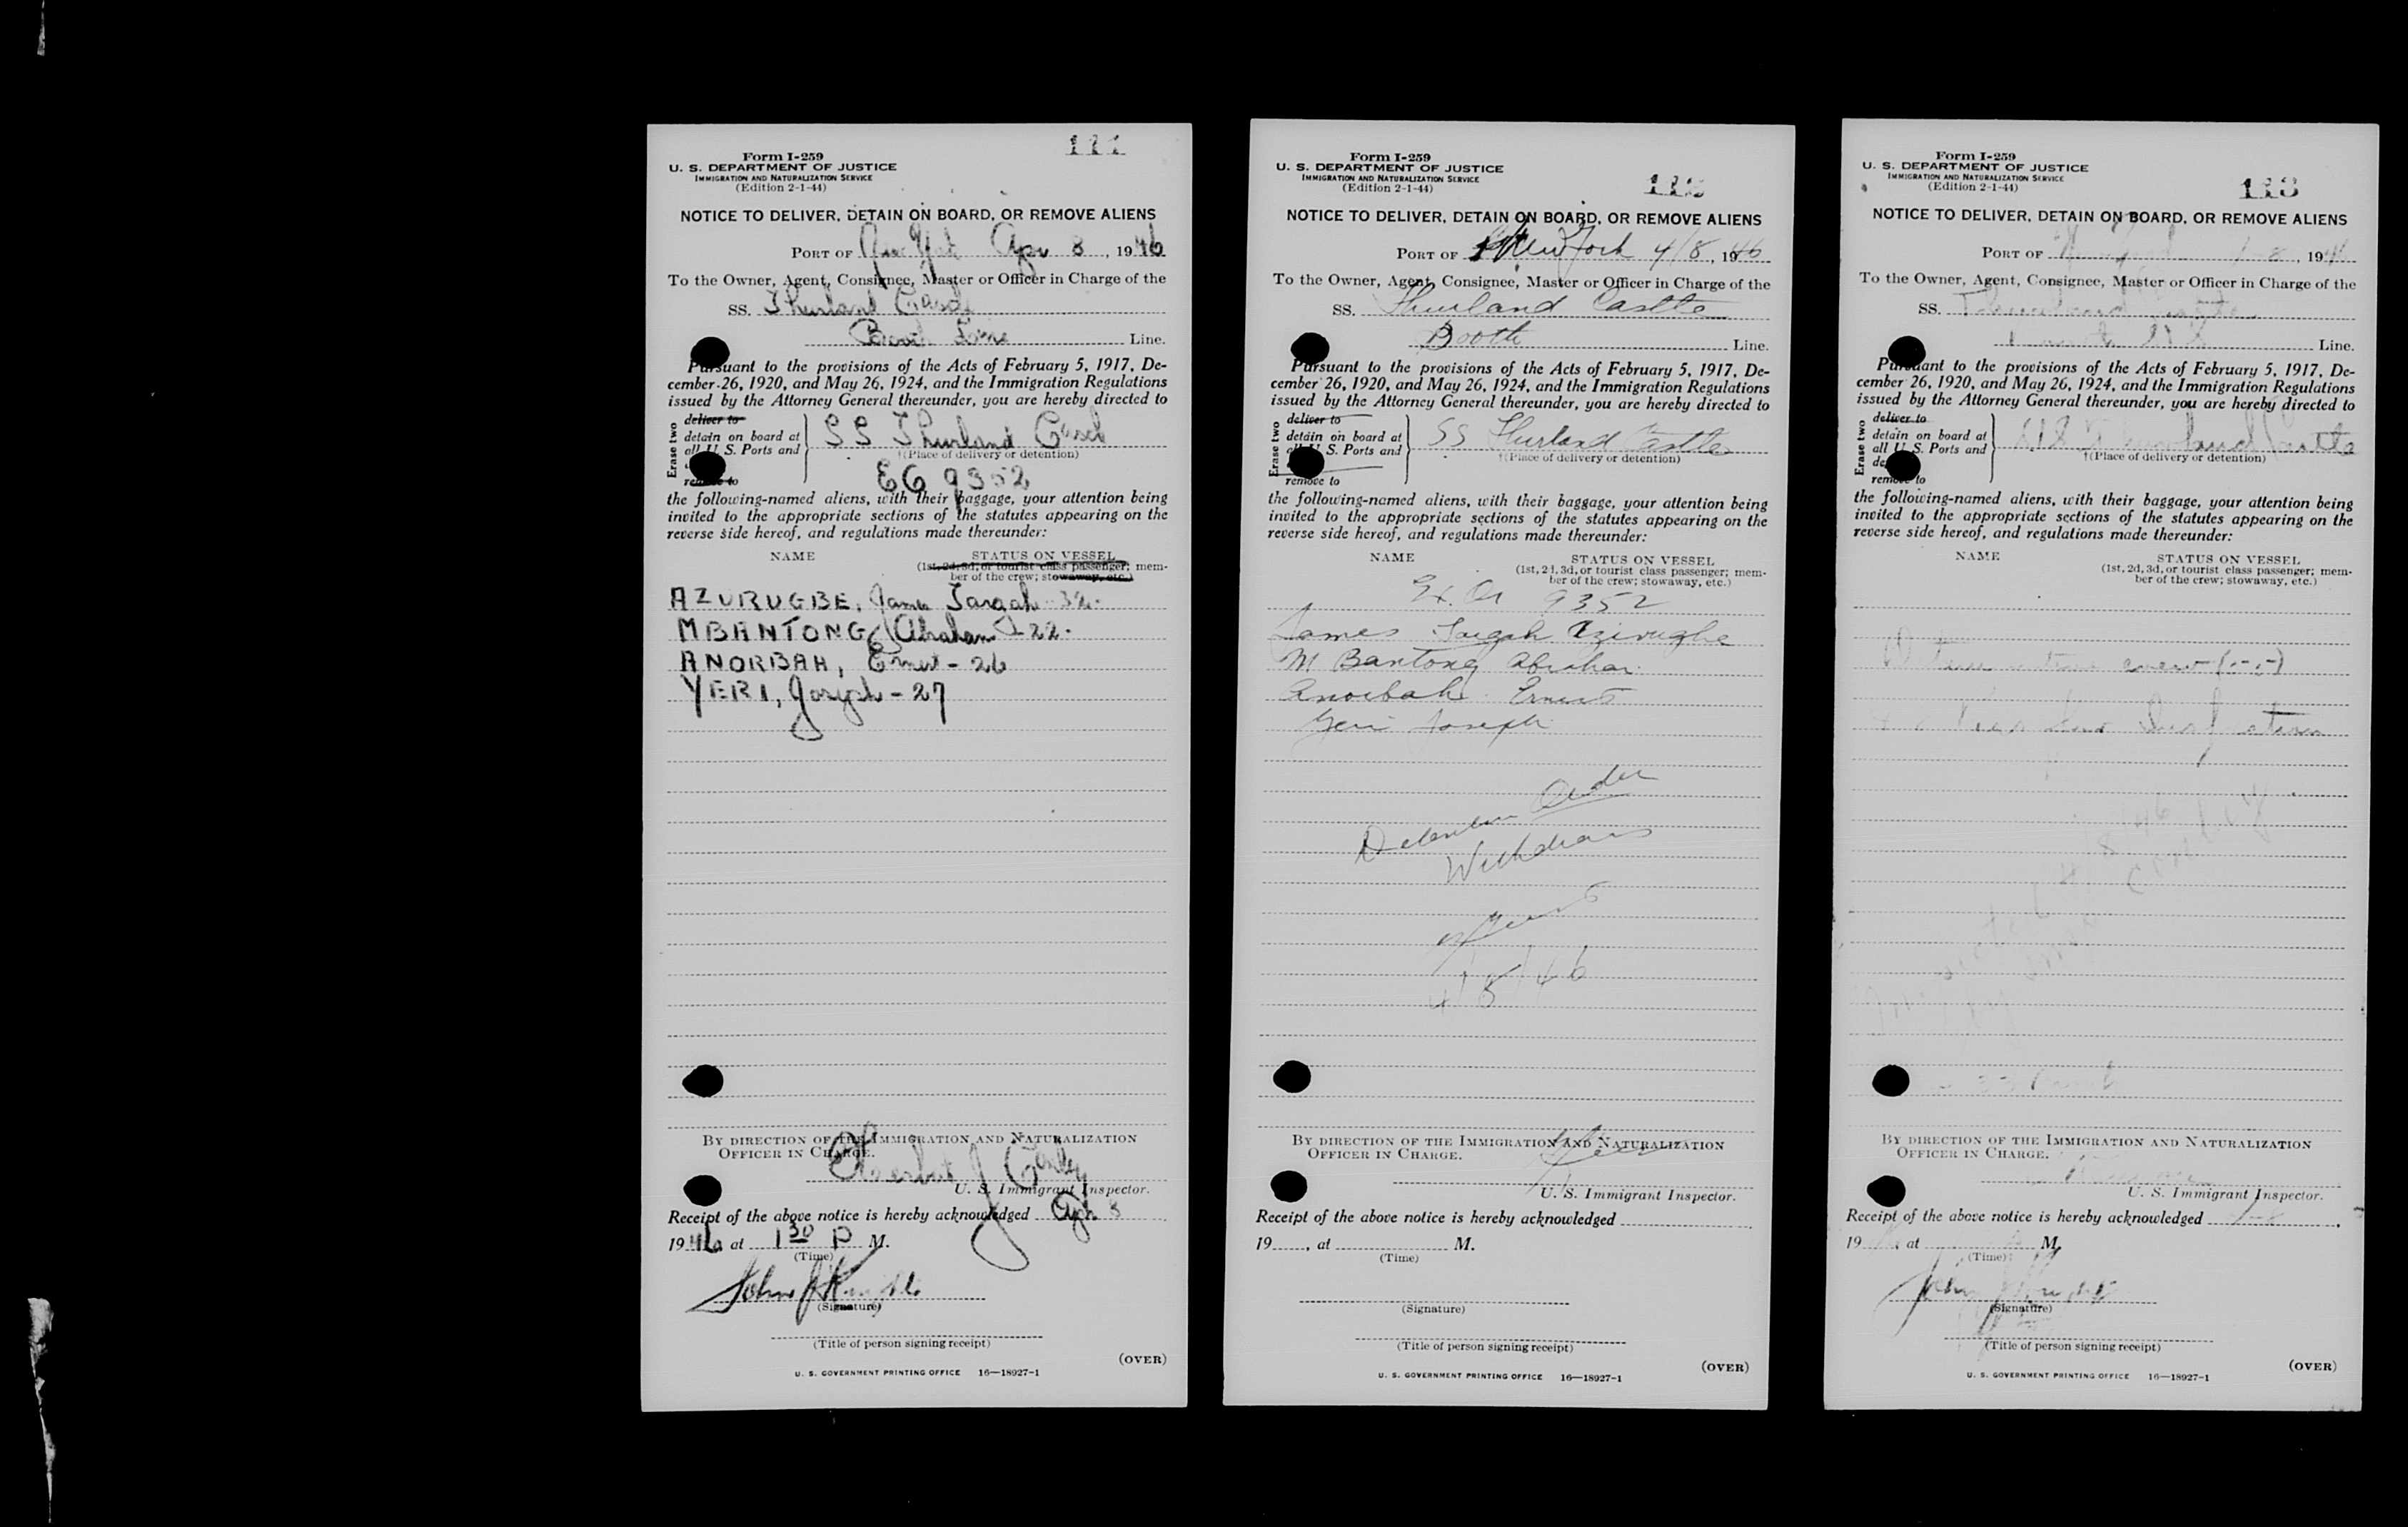 111
Form I-259
U. S. DEPARTMENT OF JUSTICE
IMMIGRATION AND NATURALIZATION SERVICE
(Edition 2-1-44)
NOTICE TO DELIVER, DETAIN ON BOARD, OR REMOVE ALIENS
PORT OF New York Apr 8, 1946
To the Owner, Agent, Consignee, Master or Officer in Charge of the
SS. Thurland Castle
Booth Line Line.
Pursuant to the provisions of the Acts of February 5, 1917, De-
cember 26, 1920, and May 26, 1924, and the Immigration Regulations
issued by the Attorney General thereunder, you are hereby directed to
Erase two
deliver to
detain on board at
all U. S. Ports and
remove to
SS Thurland Castle
†(Place of delivery or detention)
EG 9352
the following-named aliens, with their baggage, your attention being
invited to the appropriate sections of the statutes appearing on the
reverse side hereof, and regulations made thereunder:
NAME STATUS ON VESSEL
(1st, 2d, 3d, or tourist class passenger; mem-
ber of the crew; stowaway, etc.)
AZURUGBE, James 32.
MBANTONG, Abraham - 22.
ANORBAH, Ernest - 26
YERI, Joseph - 27
BY DIRECTION OF THE IMMIGRATION AND NATURALIZATION
OFFICER IN CHARGE.
U. S. Immigrant Inspector.
Receipt of the above notice is hereby acknowledged Apr 8
1946 at 1 30 P M.
(Time)
John J
(Signature)
(Title of person signing receipt)
(OVER)
U. S. GOVERNMENT PRINTING OFFICE 16—18927-1
Form I-259
U. S. DEPARTMENT OF JUSTICE
IMMIGRATION AND NATURALIZATION SERVICE
(Edition 2-1-44)
112
NOTICE TO DELIVER, DETAIN ON BOARD, OR REMOVE ALIENS
PORT OF New York 4/8, 1946
To the Owner, Agent, Consignee, Master or Officer in Charge of the
SS. Thurland Castle
Booth Line.
Pursuant to the provisions of the Acts of February 5, 1917, De-
cember 26, 1920, and May 26, 1924, and the Immigration Regulations
issued by the Attorney General thereunder, you are hereby directed to
Erase two
deliver to
detain on board at
all U. S. Ports and
remove to
SS Thurland Castle
†(Place of delivery or detention)
the following-named aliens, with their baggage, your attention being
invited to the appropriate sections of the statutes appearing on the
reverse side hereof, and regulations made thereunder:
NAME STATUS ON VESSEL
(1st, 2d, 3d, or tourist class passenger; mem-
ber of the crew; stowaway, etc.)
9352
James
M Bantong Abraham
Anorbah Ernest
Yeri Joseph
Detention Order
Withdrawn
4/8/46
BY DIRECTION OF THE IMMIGRATION AND NATURALIZATION
OFFICER IN CHARGE.
U. S. Immigrant Inspector.
Receipt of the above notice is hereby acknowledged
19 , at M.
(Time)
(Signature)
(Title of person signing receipt)
(OVER)
U. S. GOVERNMENT PRINTING OFFICE 16—18927-1
Form I-259
U. S. DEPARTMENT OF JUSTICE
IMMIGRATION AND NATURALIZATION SERVICE
(Edition 2-1-44)
113
NOTICE TO DELIVER, DETAIN ON BOARD, OR REMOVE ALIENS
PORT OF 8, 194
To the Owner, Agent, Consignee, Master or Officer in Charge of the
SS. Thurland Castle
Line.
Pursuant to the provisions of the Acts of February 5, 1917, De-
cember 26, 1920, and May 26, 1924, and the Immigration Regulations
issued by the Attorney General thereunder, you are hereby directed to
Erase two
deliver to
detain on board at
all U. S. Ports and
remove to
Thurland Castle
†(Place of delivery or detention)
the following-named aliens, with their baggage, your attention being
invited to the appropriate sections of the statutes appearing on the
reverse side hereof, and regulations made thereunder:
NAME STATUS ON VESSEL
(1st, 2d, 3d, or tourist class passenger; mem-
ber of the crew; stowaway, etc.)
BY DIRECTION OF THE IMMIGRATION AND NATURALIZATION
OFFICER IN CHARGE.
U. S. Immigrant Inspector.
Receipt of the above notice is hereby acknowledged
19 , at M.
(Time)
John J
(Signature)
(Title of person signing receipt)
(OVER)
U. S. GOVERNMENT PRINTING OFFICE 16—18927-1